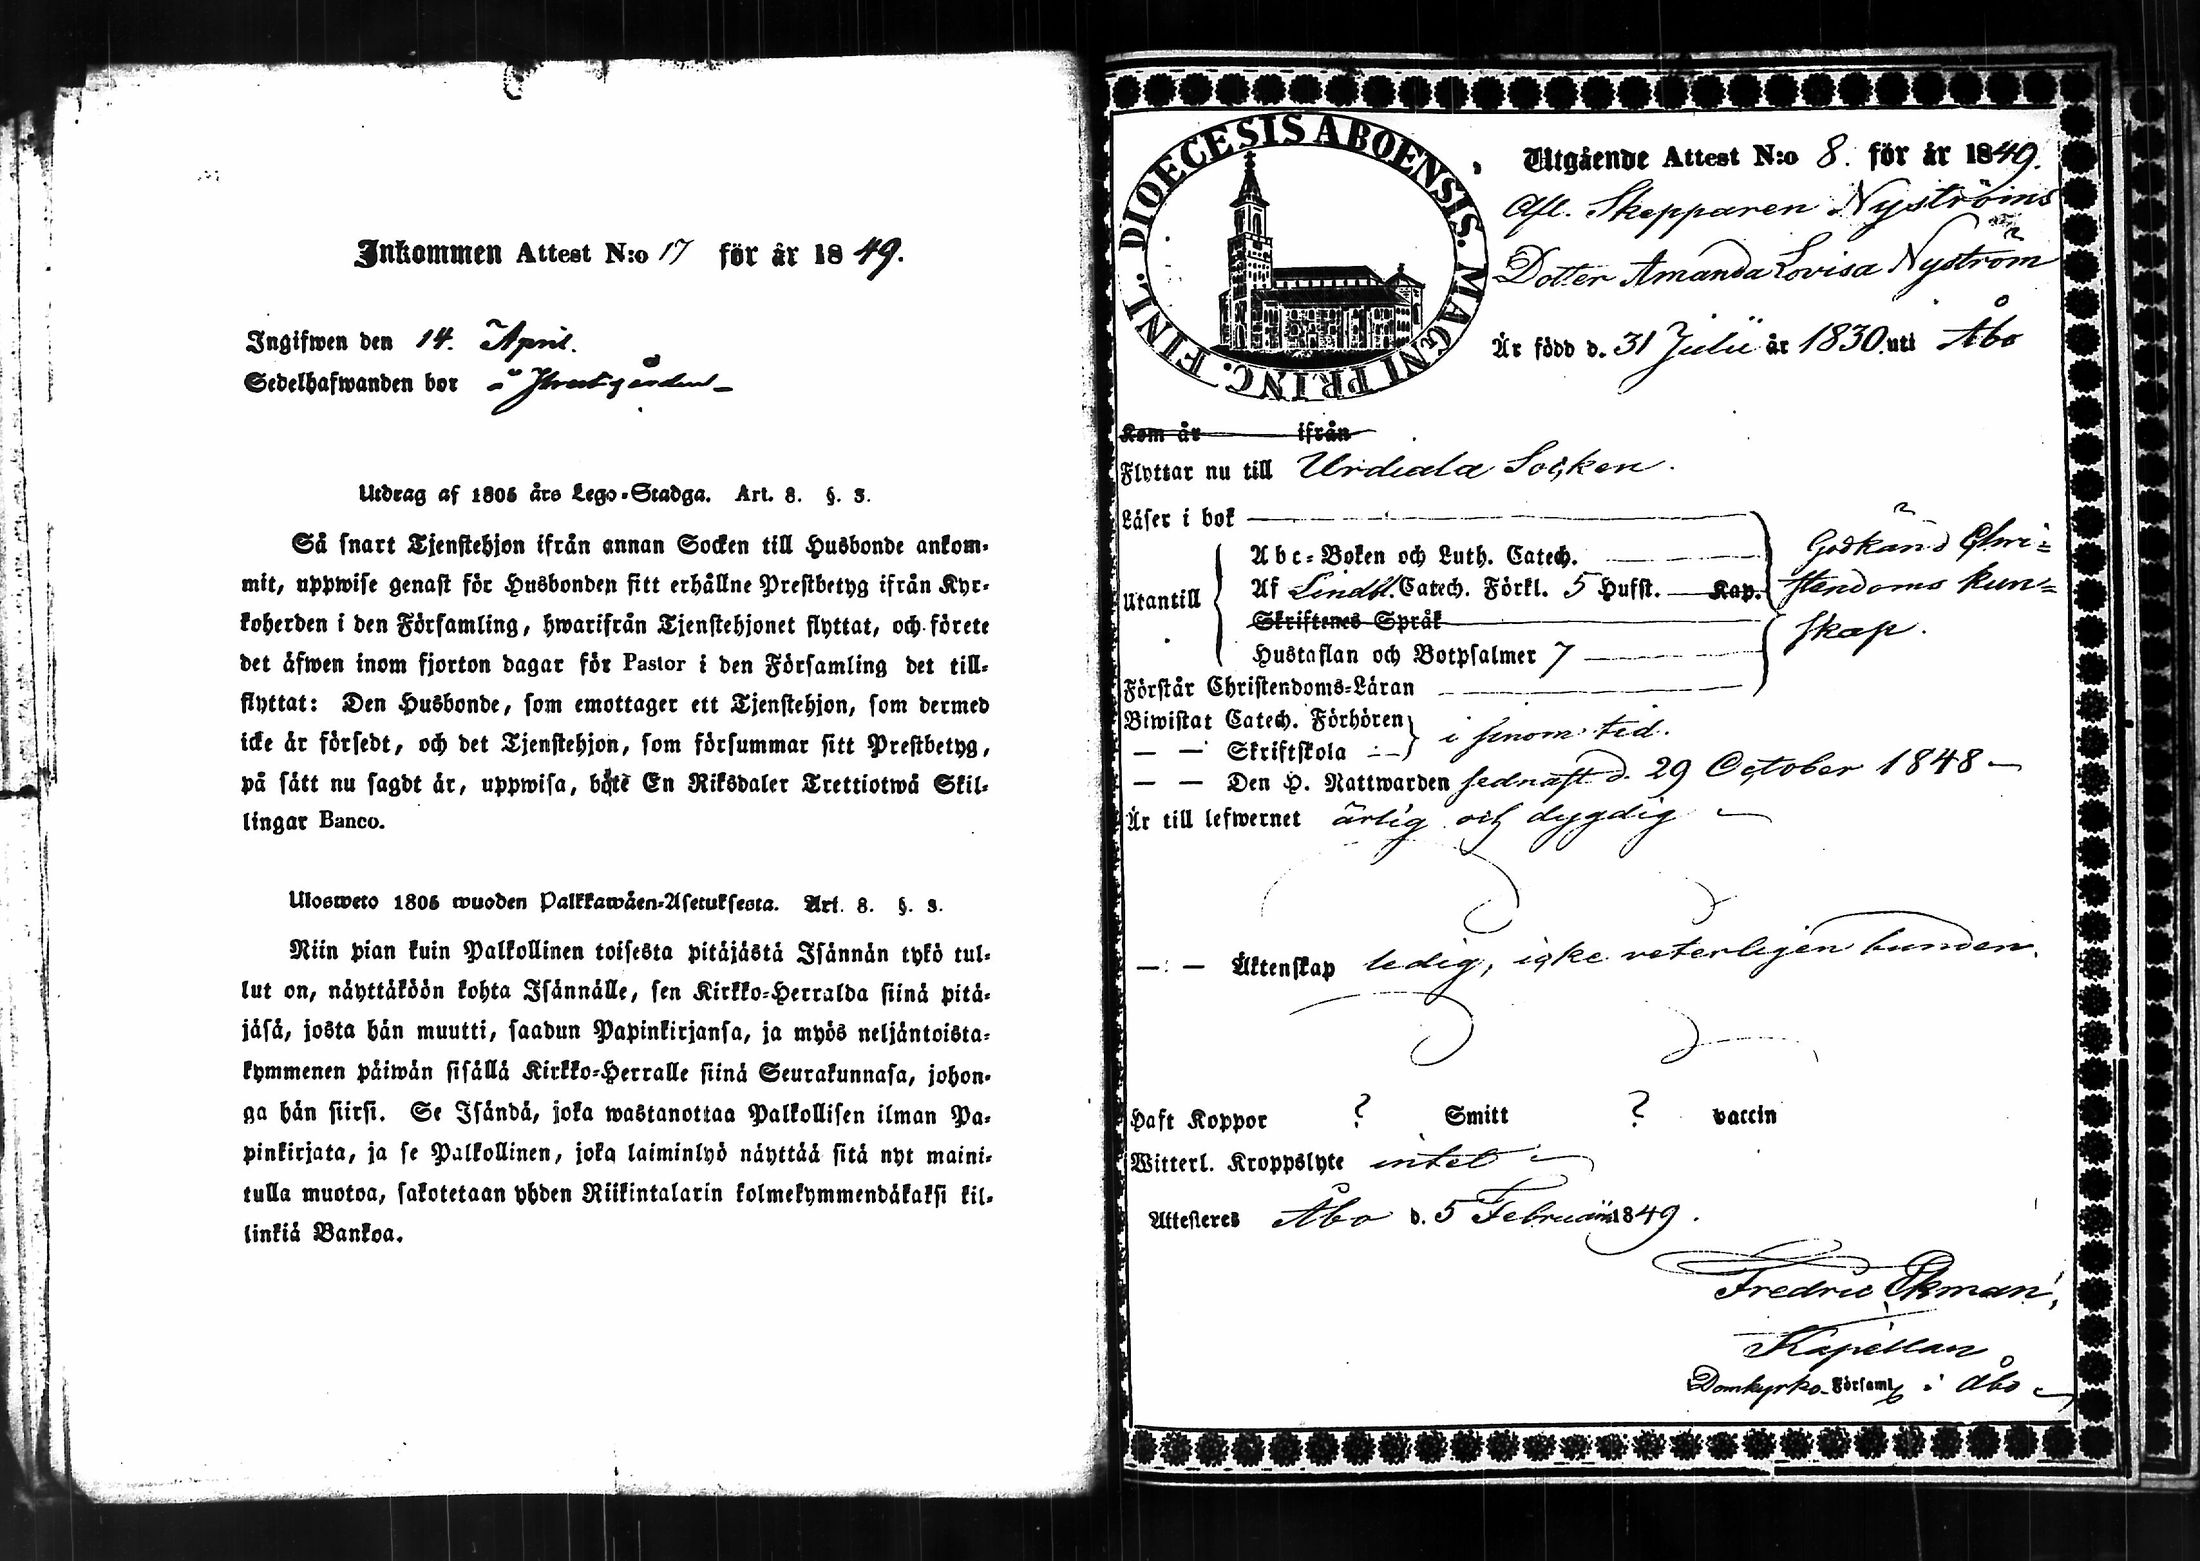 Inkommen Attest N:o 17 för år 1849.
Ingifwen den 14. April.
Sedelhafwanden bor å
Utdrag af 1805 års Lego-Stadga. Art. 8. §. 3.
Så snart Tjenstehjon ifrån annan Socken till Husbonde ankom-
mit, uppwise genast för Husbonden sitt erhållne Prestbetyg ifrån Kyr-
koherden i den Församling, hwarifrån Tjenstehjonet flyttat, och förete
det äfwen inom fjorton dagar för Pastor i den Församling det till-
flyttat: Den Husbonde, som emottager ett Tjenstehjon, som dermed
icke är försedt, och det Tjenstehjon, som försummar sitt Prestbetyg,
på sätt nu sagdt är, uppwisa, böte En Riksdaler Trettiotwå Skil-
lingar Banco.
Ulosweto 1805 wuoden Palkkawäen-Asetuksesta. Art. 8. §. 3.
Niin pian kuin Palkollinen toisesta pitäjästä Isännän tykö tul-
lut on, näyttäköön kohta Isännälle, sen Kirkko-Herralda siinä pitä-
jäsä, josta hän muutti, saadun Papinkirjansa, ja myös neljäntoista-
kymmenen päiwän sisällä Kirkko-Herralle siinä Seurakunnasa, johon-
ga hän siirsi. Se Isändä, joka wastanottaa Palkollisen ilman Pa-
pinkirjata, ja se Palkollinen, joka laiminlyö näyttää sitä nyt maini-
tulla muotoa, sakotetaan yhden Riikintalarin kolmekymmendäkaksi kil-
linkiä Bankoa.
DIOECESIS ABOENSIS. MAGNI PRINC. FINL.
Utgående Attest N:o 8. för år 1849.
Afl. Skepparen Nyströms
Dotter Amanda Lovisa Nyström
Är född d. 31 Julii år 1830. uti Åbo
Kom år ifrån
Flyttar nu till Urdiala Socken.
Läser i bok
Utantill
Abc-Boken och Luth. Catech.
Af Lindbl. Catech. Förkl. 5 Hufst. Kap.
Skriftenes Språk
Hustaflan och Botpsalmer 7
Förstår Christendoms-Läran
Godkänd Chri-
stendoms kun-
skap.
Biwistat Catech. Förhören
— — Skriftskola
i sinom tid.
— — Den H. Nattwarden sednast d. 29 October 1848 —
Är till lefwernet ärlig och dygdig —
— : — Äktenskap ledig, icke veterligen bunden.
Haft Koppor ? Smitt ? vaccin
Witterl. Kroppslyte intet
Attesteres Åbo d. 5 Februarii 1849.
Fredric Ekman,
Kapellan
Domkyrko-Församl i Åbo